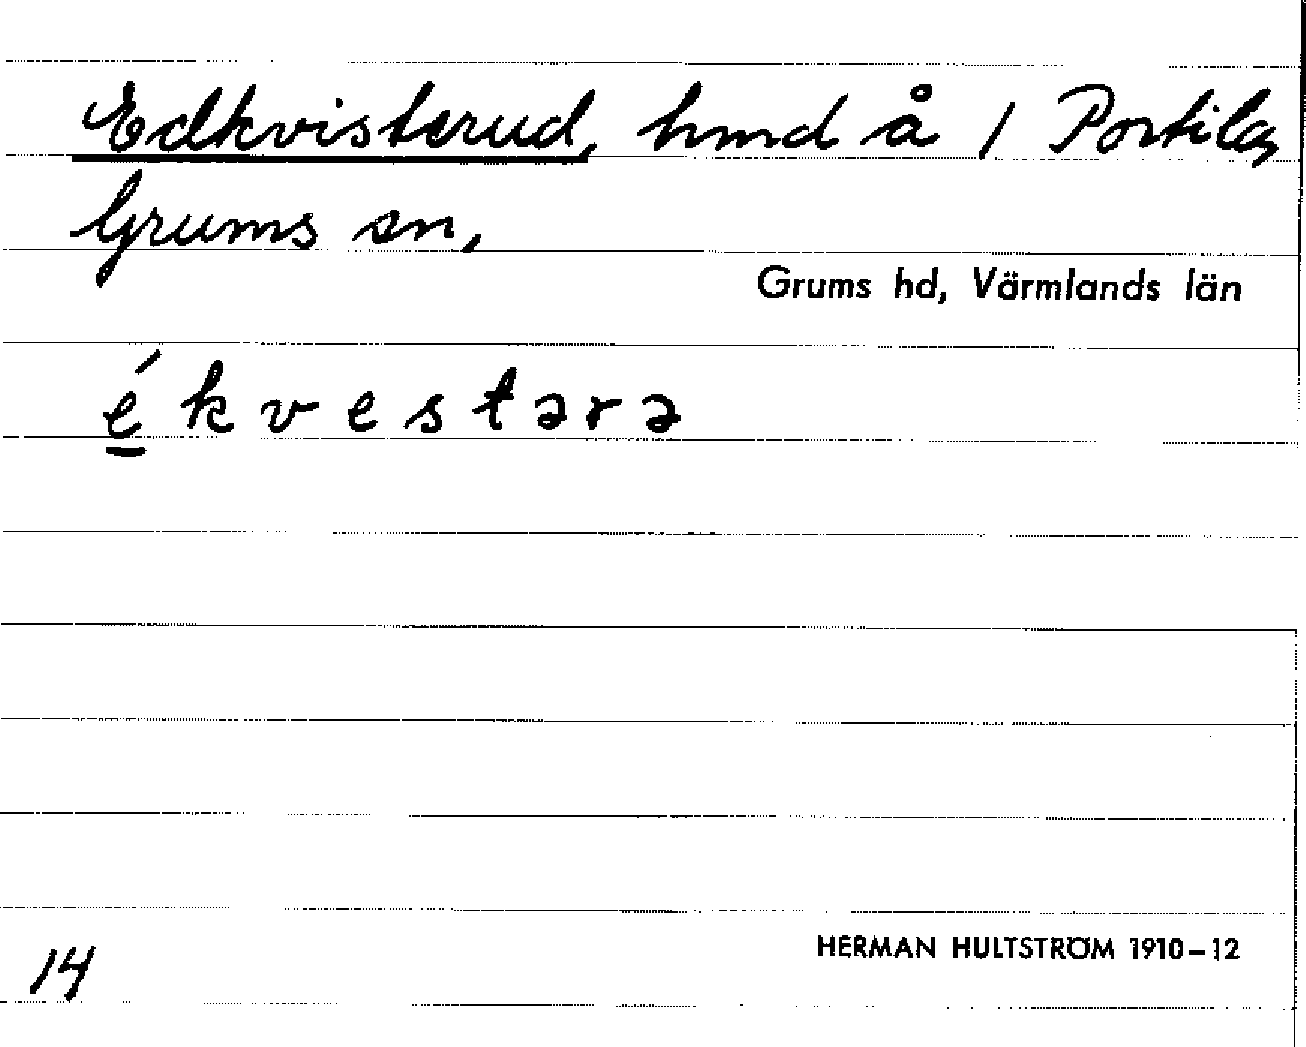 Edkvisterud, hmd å 1 Portila,
Grums sn,
Grums hd, Värmlands län
é̠ k v e s t ə r ə
14
HERMAN HULTSTRÖM 1910–12